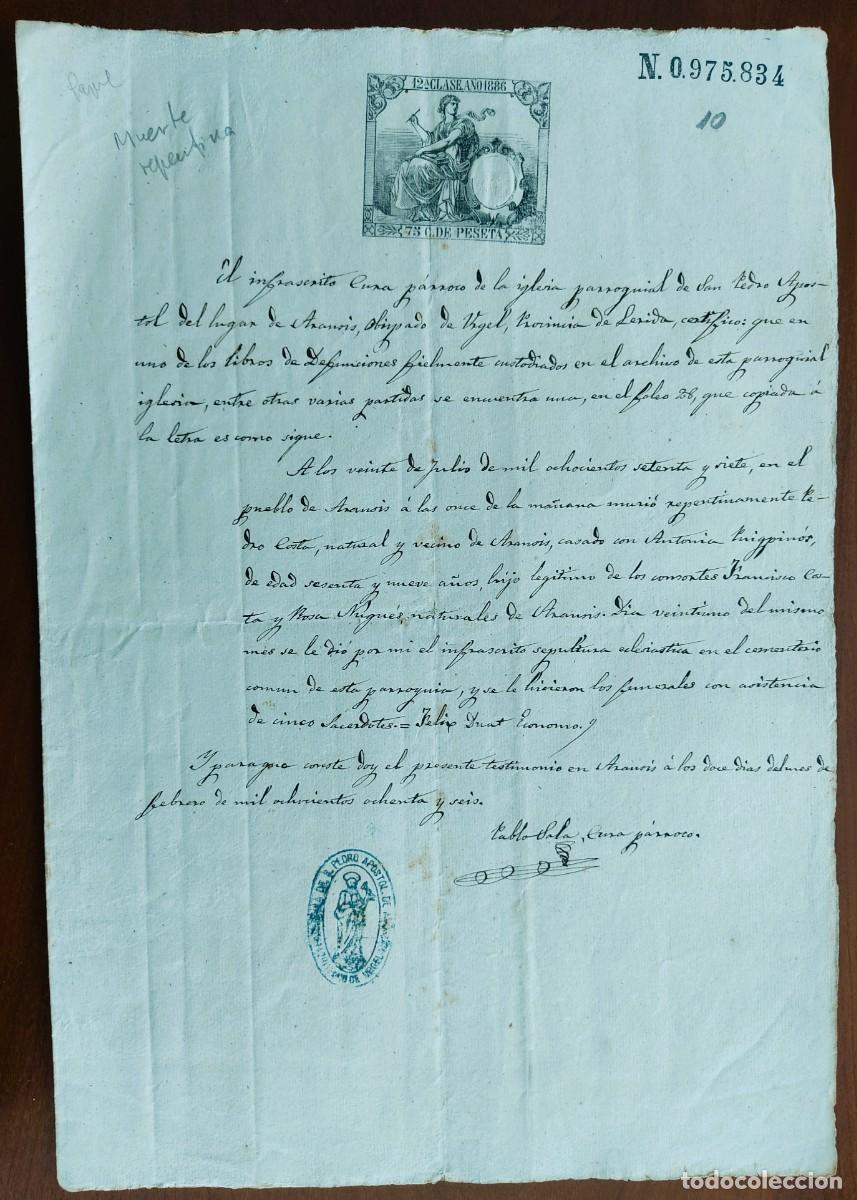 N. 0.975.834
10
Muerte
repentina
12ª CLASE. AÑO 1886
75 C. DE PESETA
El infrascrito Cura párroco de la iglesia parroquial de San Pedro Apos-
tol del lugar de Aransis, Obispado de Urgel, Provincia de Lerida, certifico: que en
uno de los libros de Defunciones fielmente custodiados en el archivo de esta parroquial
iglesia, entre otras varias partidas se encuentra una, en el foleo 26, que copiada á
la letra es como sigue.
A los veinte de Julio de mil ochocientos setenta y siete, en el
pueblo de Aransis á las once de la mañana murió repentinamente Pe-
dro Costa, natural y vecino de Aransis, casado con Antonia Puigpinós,
de edad sesenta y nueve años, hijo legitimo de los consortes Francisco Cos-
ta y Rosa Nugués, naturales de Aransis. Dia veintiuno del mismo
mes se le dió por mi el infrascrito sepultura eclesiastica en el cementerio
comun de esta parroquia, y se le hicieron los funerales con asistencia
de cinco Sacerdotes.= Felix Duat Economo.
Y paraque conste doy el presente testimonio en Aransis á los doce dias del mes de
febrero de mil ochocientos ochenta y seis.
Pablo Sala, Cura párroco.
DE S. PEDRO APOSTOL DE
todocoleccion